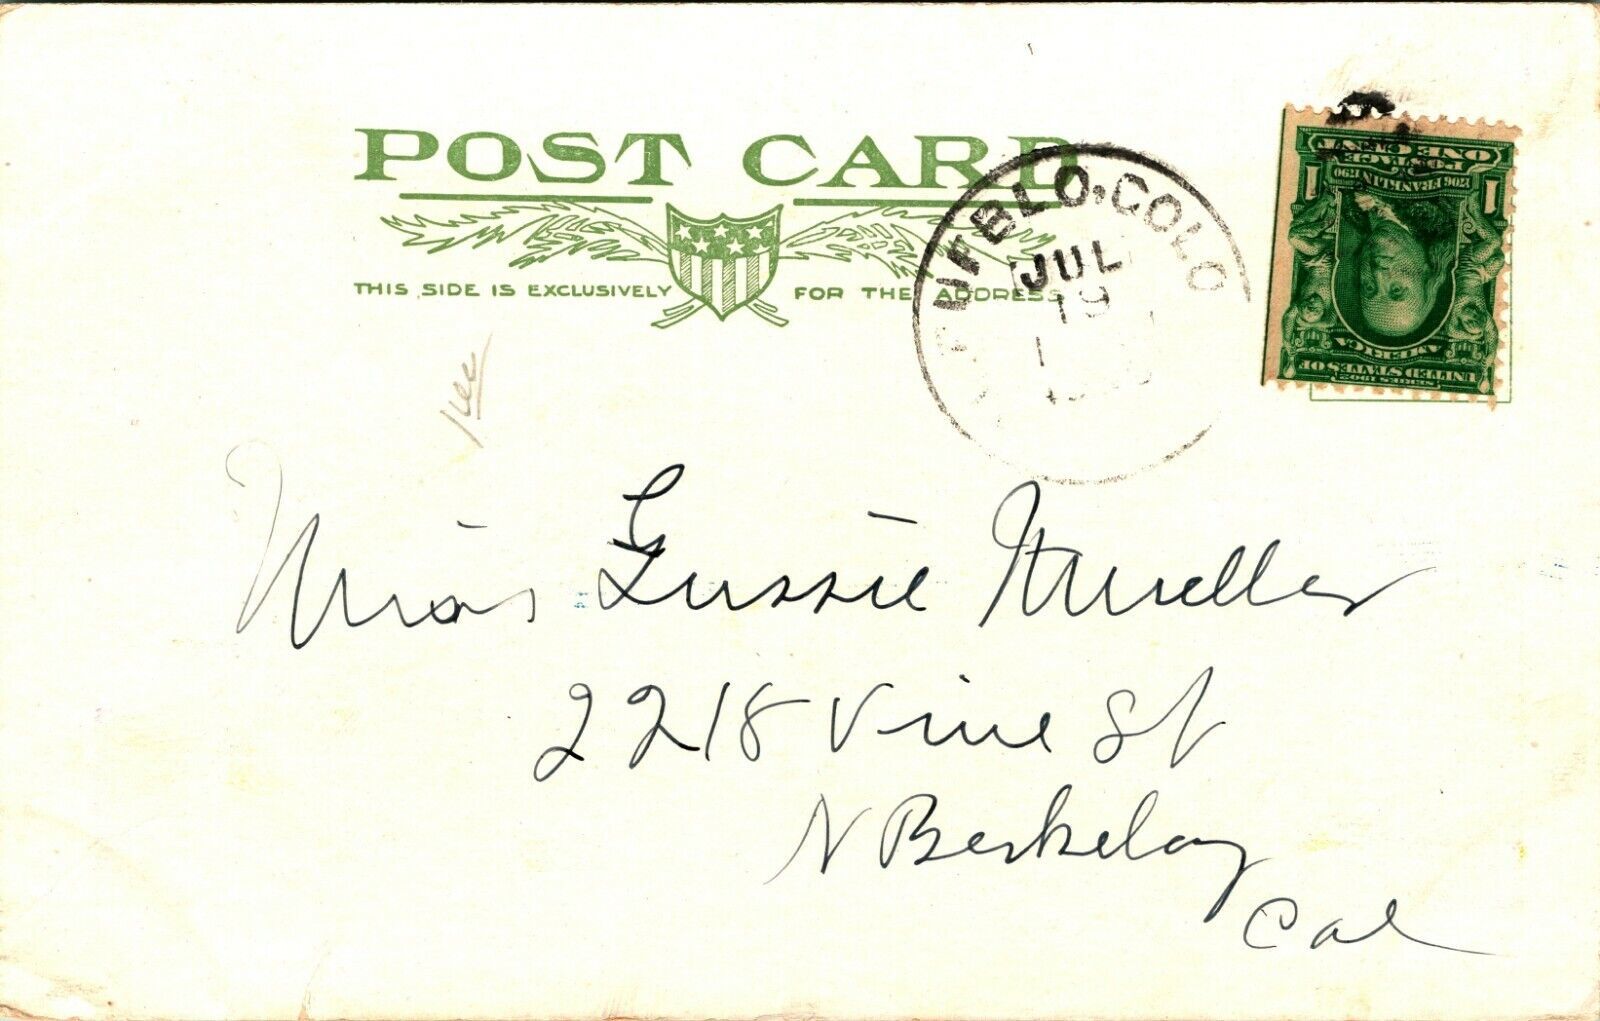 POST CARD
THIS SIDE IS EXCLUSIVELY FOR THE ADDRESS
PUEBLO, COLO
JUL
19
1
ONE CENT
POSTAGE
1706 FRANKLIN 1790
1 1
AMERICA
UNITED STATES OF
SERIES 1902
Miss Gussie Mueller
2218 Vine St
N Berkeley
Cal